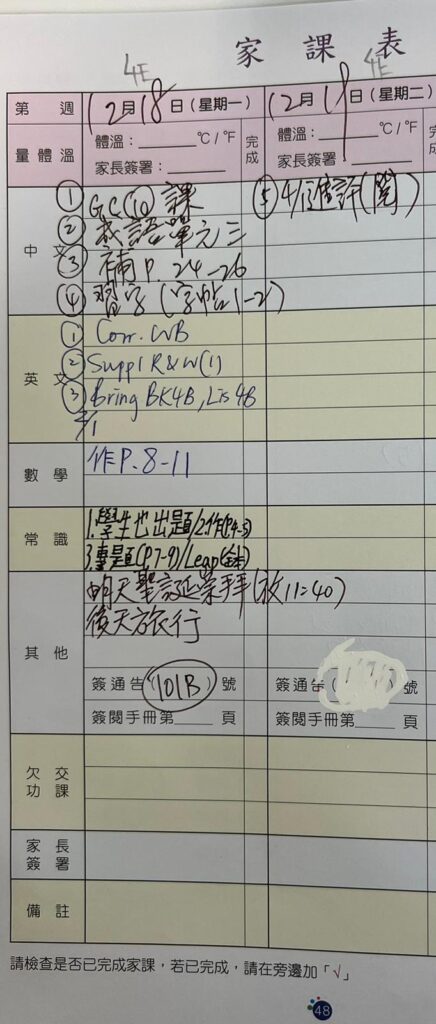 家課表
4E
4E
第 週
12月18日(星期一)
12月19日(星期二)
量體溫
體溫:______°C/°F
家長簽署:______
完成
體溫:______°C/°F
家長簽署:______
完
中文
① GC⑩課
② 成語單元三
③ 補P.24-26
④ 習字(字帖1-2)
⑤ 4/1進評(閱)
英文
① Corr. WB
② Suppl R&W(1)
③ Bring BK4B, Lis 4B
4/1
數學
作P.8-11
常識
1.學生也出題/2.作(P.4-5)
3.專題(P.7-9)/Leap(全本)
其他
明天聖誕崇拜(放11:40)
後天旅行
簽通告(101B)號
簽閱手冊第____頁
簽通告( )號
簽閱手冊第____頁
欠交功課
家長簽署
備註
請檢查是否已完成家課,若已完成,請在旁邊加「√」
48